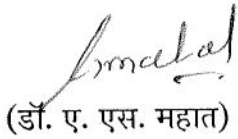 (डॉ. ए. एस. महात)